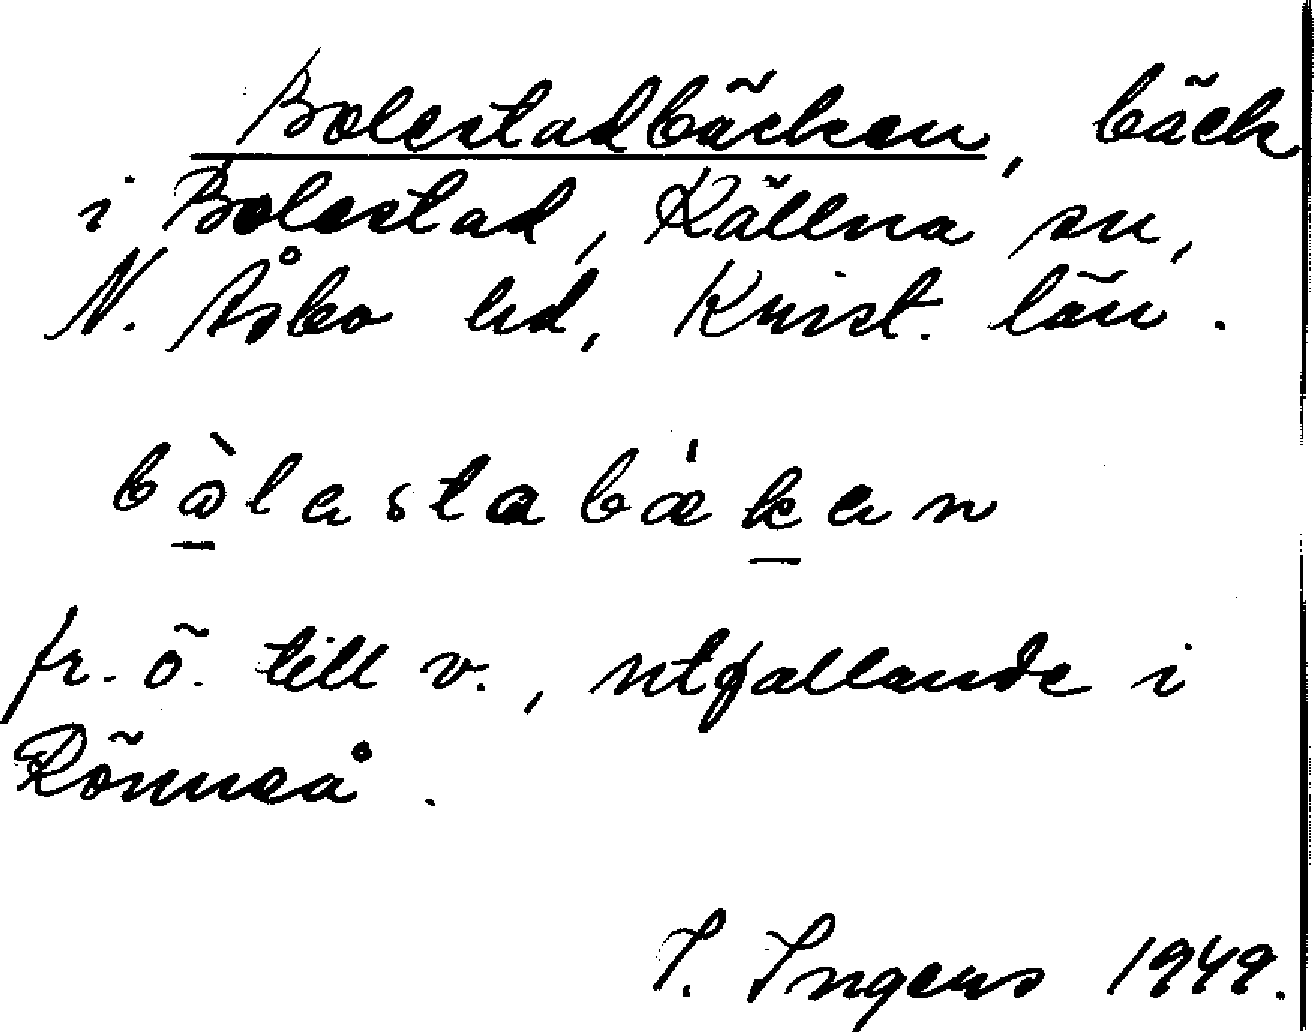 Bolestadbäcken, bäck
i Bolestad, Källna sn,
N. Åsbo hd, Krist. län.
bòlastabækan
fr. ö. till v., utfallande i
Rönneå.
I. Ingers 1949.